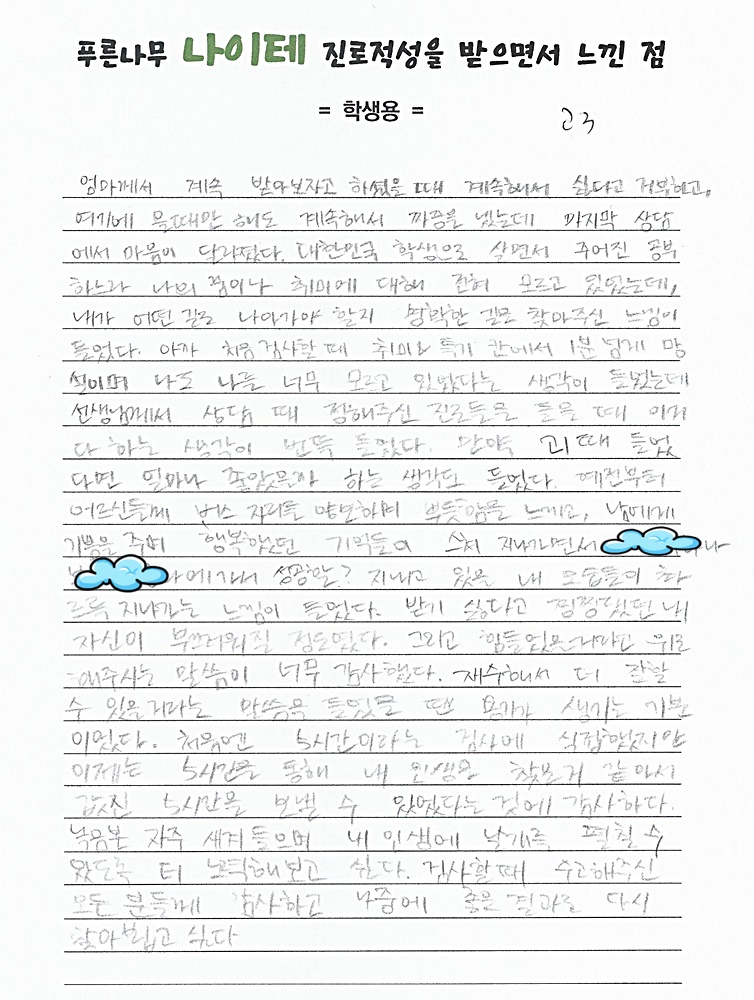 푸른나무 나이테 진로적성을 받으면서 느낀 점
= 학생용 =
고3
엄마께서 계속 받아보자고 하셨을 때 계속해서 싫다고 거부하고,
여기에 올때만 해도 계속해서 짜증을 냈는데 마지막 상담
에서 마음이 달라졌다. 대한민국 학생으로 살면서 주어진 공부
하느라 나의 꿈이나 취미에 대해 전혀 모르고 있었는데,
내가 어떤 길로 나아가야 할지 명확한 길을 찾아주신 느낌이
들었다. 아까 처음 검사할 때 취미와 특기 칸에서 1분 넘게 망
설이며 나도 나를 너무 모르고 있었다는 생각이 들었는데
선생님께서 상담 때 정해주신 진로들을 들을 때 이거
다 하는 생각이 번뜩 들었다. 만약 고1때 들었
다면 얼마나 좋았을까 하는 생각도 들었다. 예전부터
어르신들께 버스 자리를 양보하며 뿌듯함을 느끼고, 남에게
기쁨을 주며 행복했던 기억들이 스쳐 지나가면서
에가서 성공할? 지나고 있을 내 모습들이 촤
르륵 지나가는 느낌이 들었다. 받기 싫다고 징징댔던 내
자신이 부끄러워질 정도였다. 그리고 힘들었을거라고 위로
해주시는 말씀이 너무 감사했다. 재수해서 더 잘할
수 있을거라는 말씀을 들었을 땐 용기가 생기는 기분
이었다. 처음엔 5시간이라는 검사에 식겁했지만
이제는 5시간을 통해 내 인생을 찾은거 같아서
값진 5시간을 보낼 수 있었다는 것에 감사하다.
녹음본 자주 새겨들으며 내 인생에 날개를 펼칠 수
있도록 더 노력해보고 싶다. 검사할때 수고해주신
모든 분들께 감사하고 나중에 좋은 결과로 다시
찾아뵙고 싶다